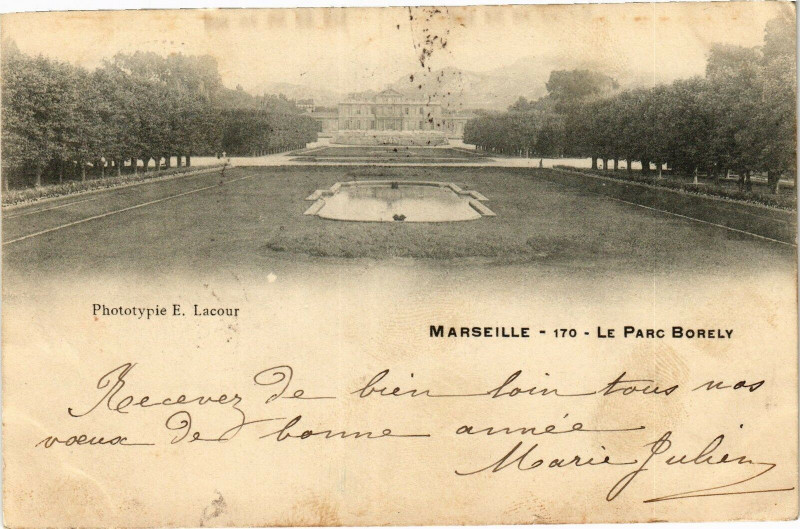 Phototypie E. Lacour
MARSEILLE - 170 - LE PARC BORELY
Recevez de bien loin tous nos
vœux de bonne année
Marie Julien